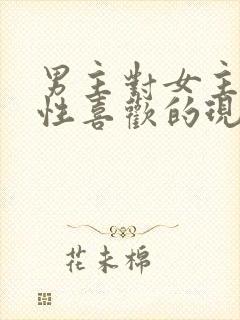 男主對女主
性喜歡的現
花未棉